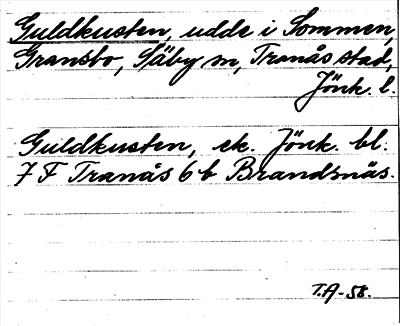 Guldkusten, udde i Sommen,
Gransbo, Säby sn, Tranås stad,
Jönk. l.
Guldkusten, ek. Jönk. bl.
7 F Tranås 6 b Brandsnäs.
T.A-58.